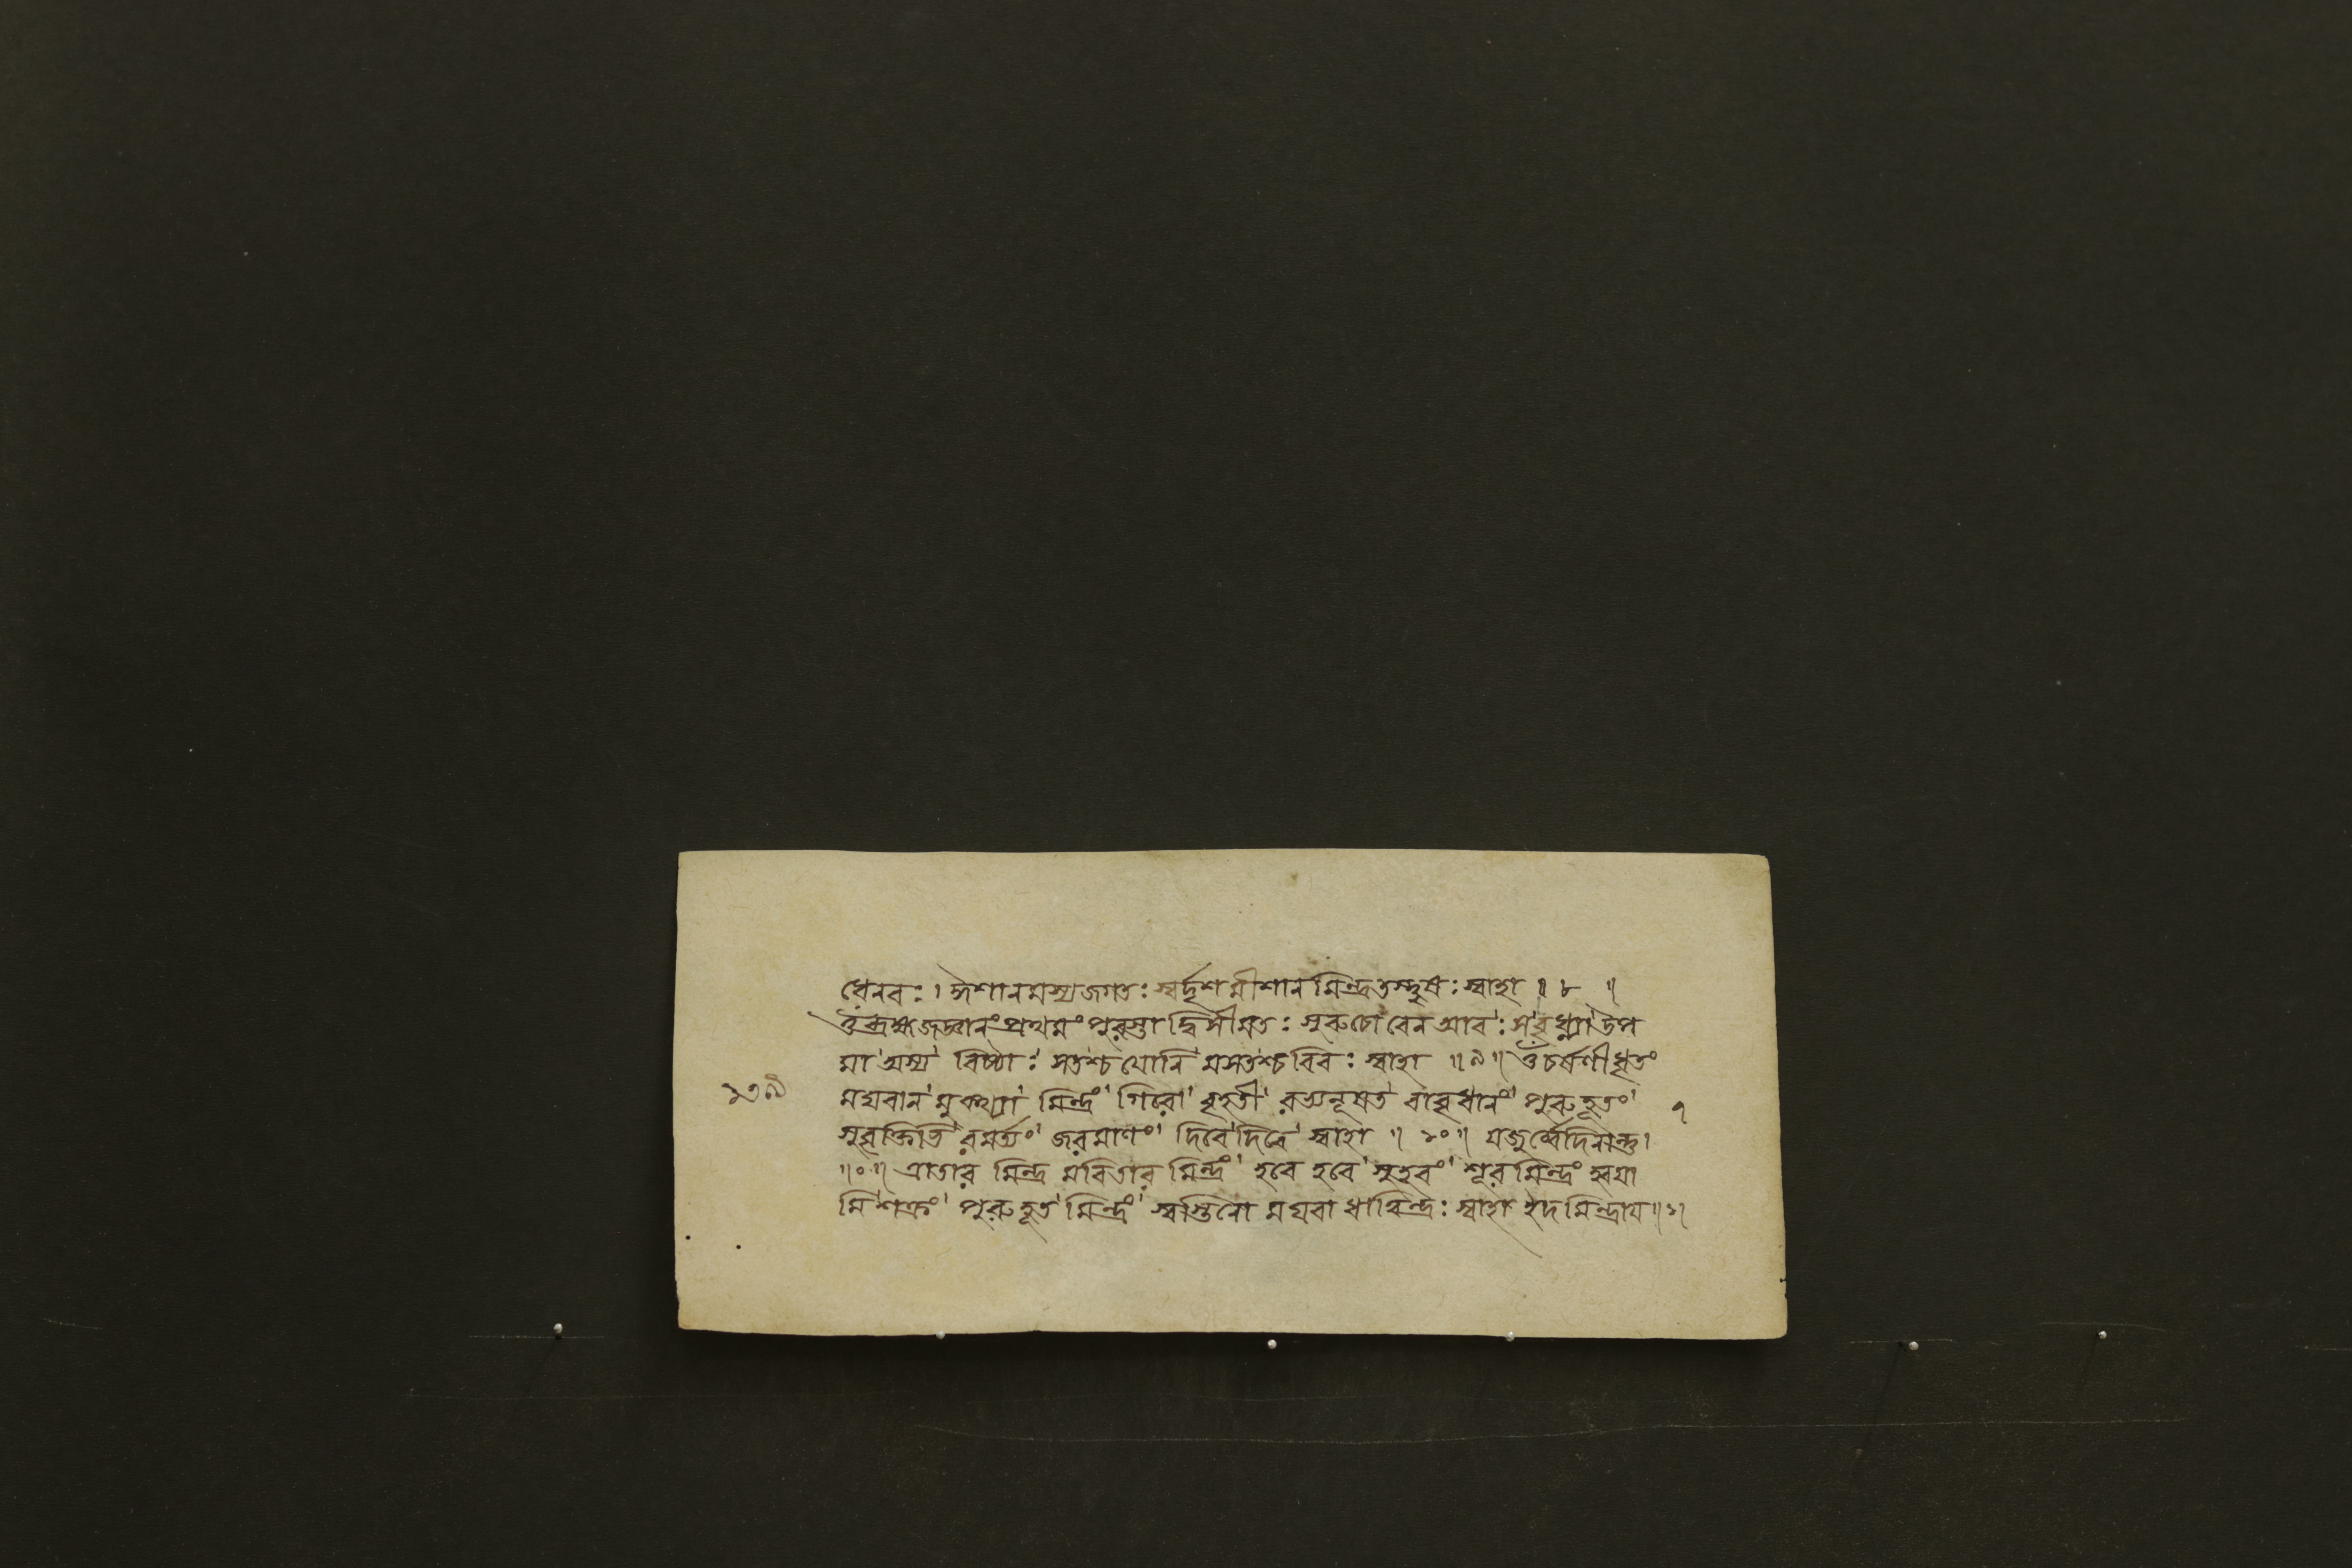 ধেনবঃ। ঈশানমস্যজগতঃ স্বর্দৃশমীশান মিন্দ্রতস্থুষঃ স্বাহা ॥ ৮ ॥
ওঁব্রহ্মজজ্ঞানং প্রথমং পুরস্তা দ্বিসীমতঃ সুরুচো বেন আবঃ সবুধ্ন্যা উপ
মা অস্য বিষ্ঠাঃ সতশ্চ যোনি মসতশ্চ বিবঃ স্বাহা ॥ ৯ ॥ ওঁ চর্ষণীধৃতং
মঘবান মুকথ্যা মিন্দ্রং গিরো বৃহতী রভ্যনূষত বাবৃধানং পুরুহূতং
সুবৃক্তিভি রমর্ত্যং জরমাণং দিবেদিবে স্বাহা ॥ ১০ ॥ যজুর্ব্বেদিনান্তু।
॥০॥ ত্রাতার মিন্দ্র মবিতার মিন্দ্রং হবে হবে সুহবং শূর মিন্দ্রং হ্বয়া
মি শক্রং পুরুহূত মিন্দ্রং স্বস্তিনো মঘবা ধাত্বিন্দ্রঃ স্বাহা ইদ মিন্দ্রায় ॥১॥